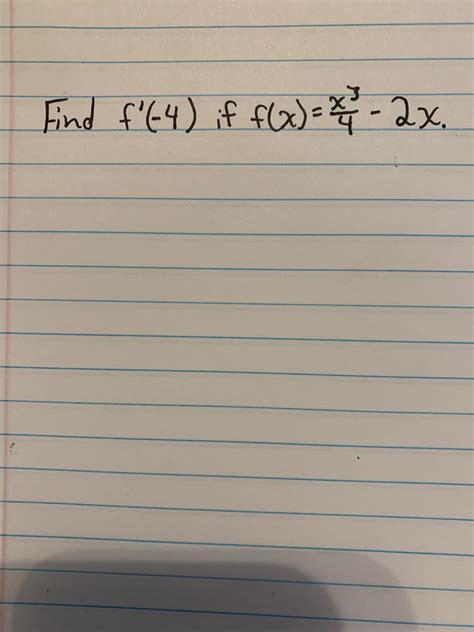 Find f'(-4) if f(x) = x³/4 - 2x.